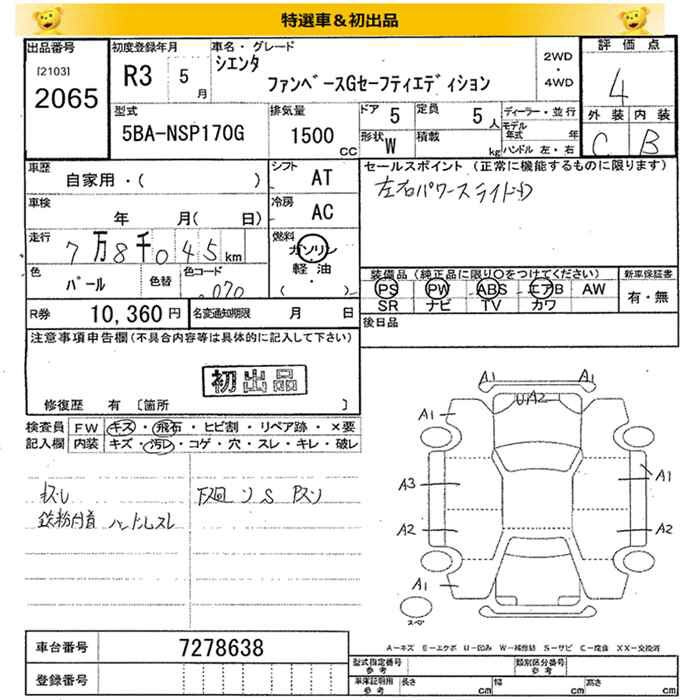 特選車＆初出品
出品番号
[2103]
2065
初度登録年月
R3 5月
車名・グレード
シエンタ
ファンベースGセーフティエディション
2WD
・
4WD
評価点
4
外装 内装
C B
型式
5BA-NSP170G
排気量
1500
CC
ドア 5
定員 5人
形状 W
積載 kg
ディーラー・並行
モデル年式 年
ハンドル 左・右
車歴
自家用・( )
シフト AT
車検
年 月( 日)
冷房 AC
走行
7万8千045km
燃料
ガソリン
軽油
( ・ )
色
パール
色替
色コード
070
R券 10,360円
名変通知期限 月 日
セールスポイント (正常に機能するものに限ります)
左右パワースライドD
装備品(純正品に限り○をつけてください)
PS PW ABS エアB AW
SR ナビ TV カワ
新車保証書
有・無
後日品
注意事項申告欄(不具合内容等は具体的に記入して下さい)
初出品
修復歴 有 [箇所 ]
検査員
記入欄
FW キズ・飛石・ヒビ割・リペア跡・×要
内装 キズ・汚レ・コゲ・穴・スレ・キレ・破レ
鉄粉付着 ハンドルスレ
A1
A1
A1
UA2
A3
A1
A2
A2
A1
A1
スペア
A－キズ E－エクボ U－凹み W－補修跡 S－サビ C－腐食 XX－交換済
車台番号 7278638
登録番号
型式指定番号
参考
類別区分番号
参考
車庫証明用
参考
長さ cm
幅 cm
高さ cm